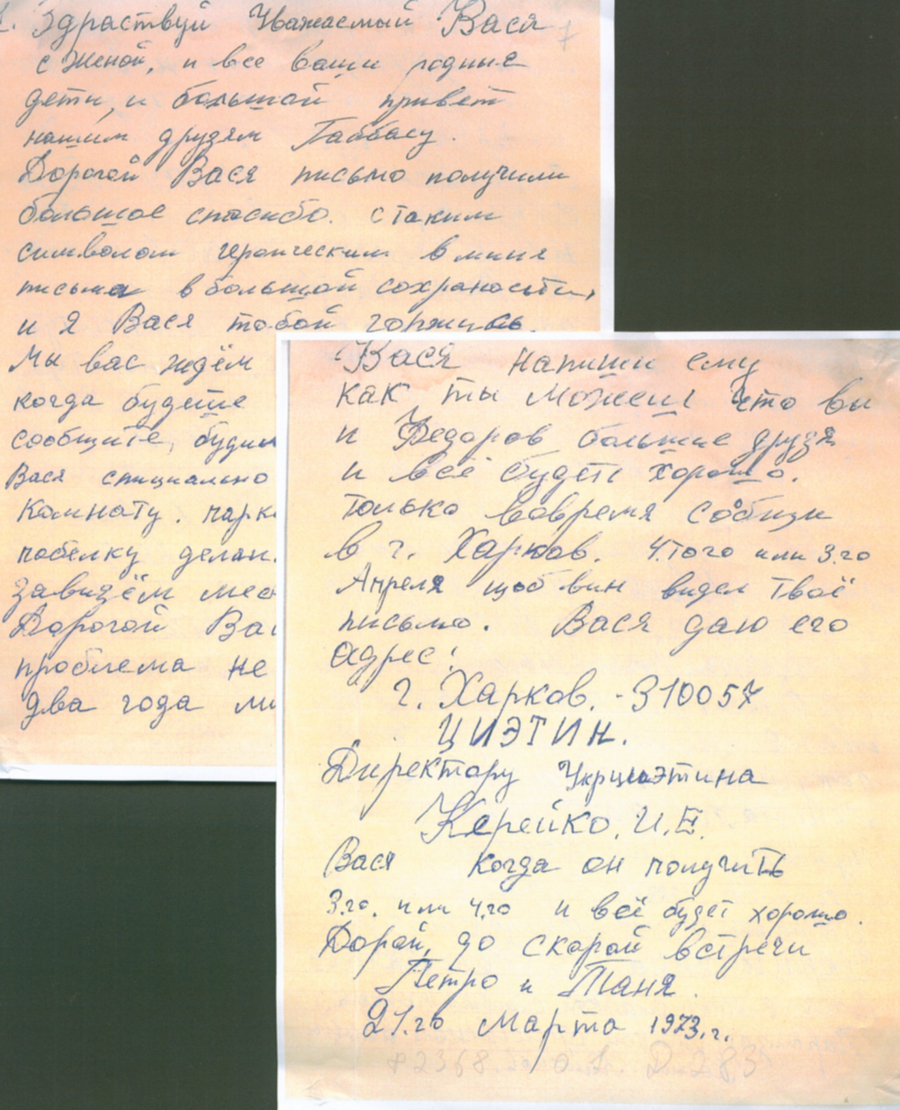 Здраствуй Уважаемый Вася
с Женой, и все ваши родные
дети, и большой привет
нашим друзям Габбасу.
Дорогой Вася письмо получили
большое спасибо. с таким
символом героическим в мине
письма в большой сохраности,
и я Вася тобой горжусь.
Мы вас ждём
когда будете
сообщите, будим
Вася специально
Комнату. парк
побелку делан.
завидём мес
Дорогой Вас
проблема не
два года ми
Вася напиши ему
как ты Можеш что вы
и Федоров большие друзя
и всё будеть хорошо.
только вовремя сообщи
в г. Харков. 4.того или 3.го
Апреля щоб вин видел твоё
письмо. Вася даю его
адрес:
г. Харков. - 310057
ЦИЭТИН.
Директору Укрциэтина
Керейко. И.Е.
Вася когда он получить
3.го. или 4.го и всё будет хорошо.
Дорой, до скорой встречи
Петро и Таня.
21.го Марта 1973.г.